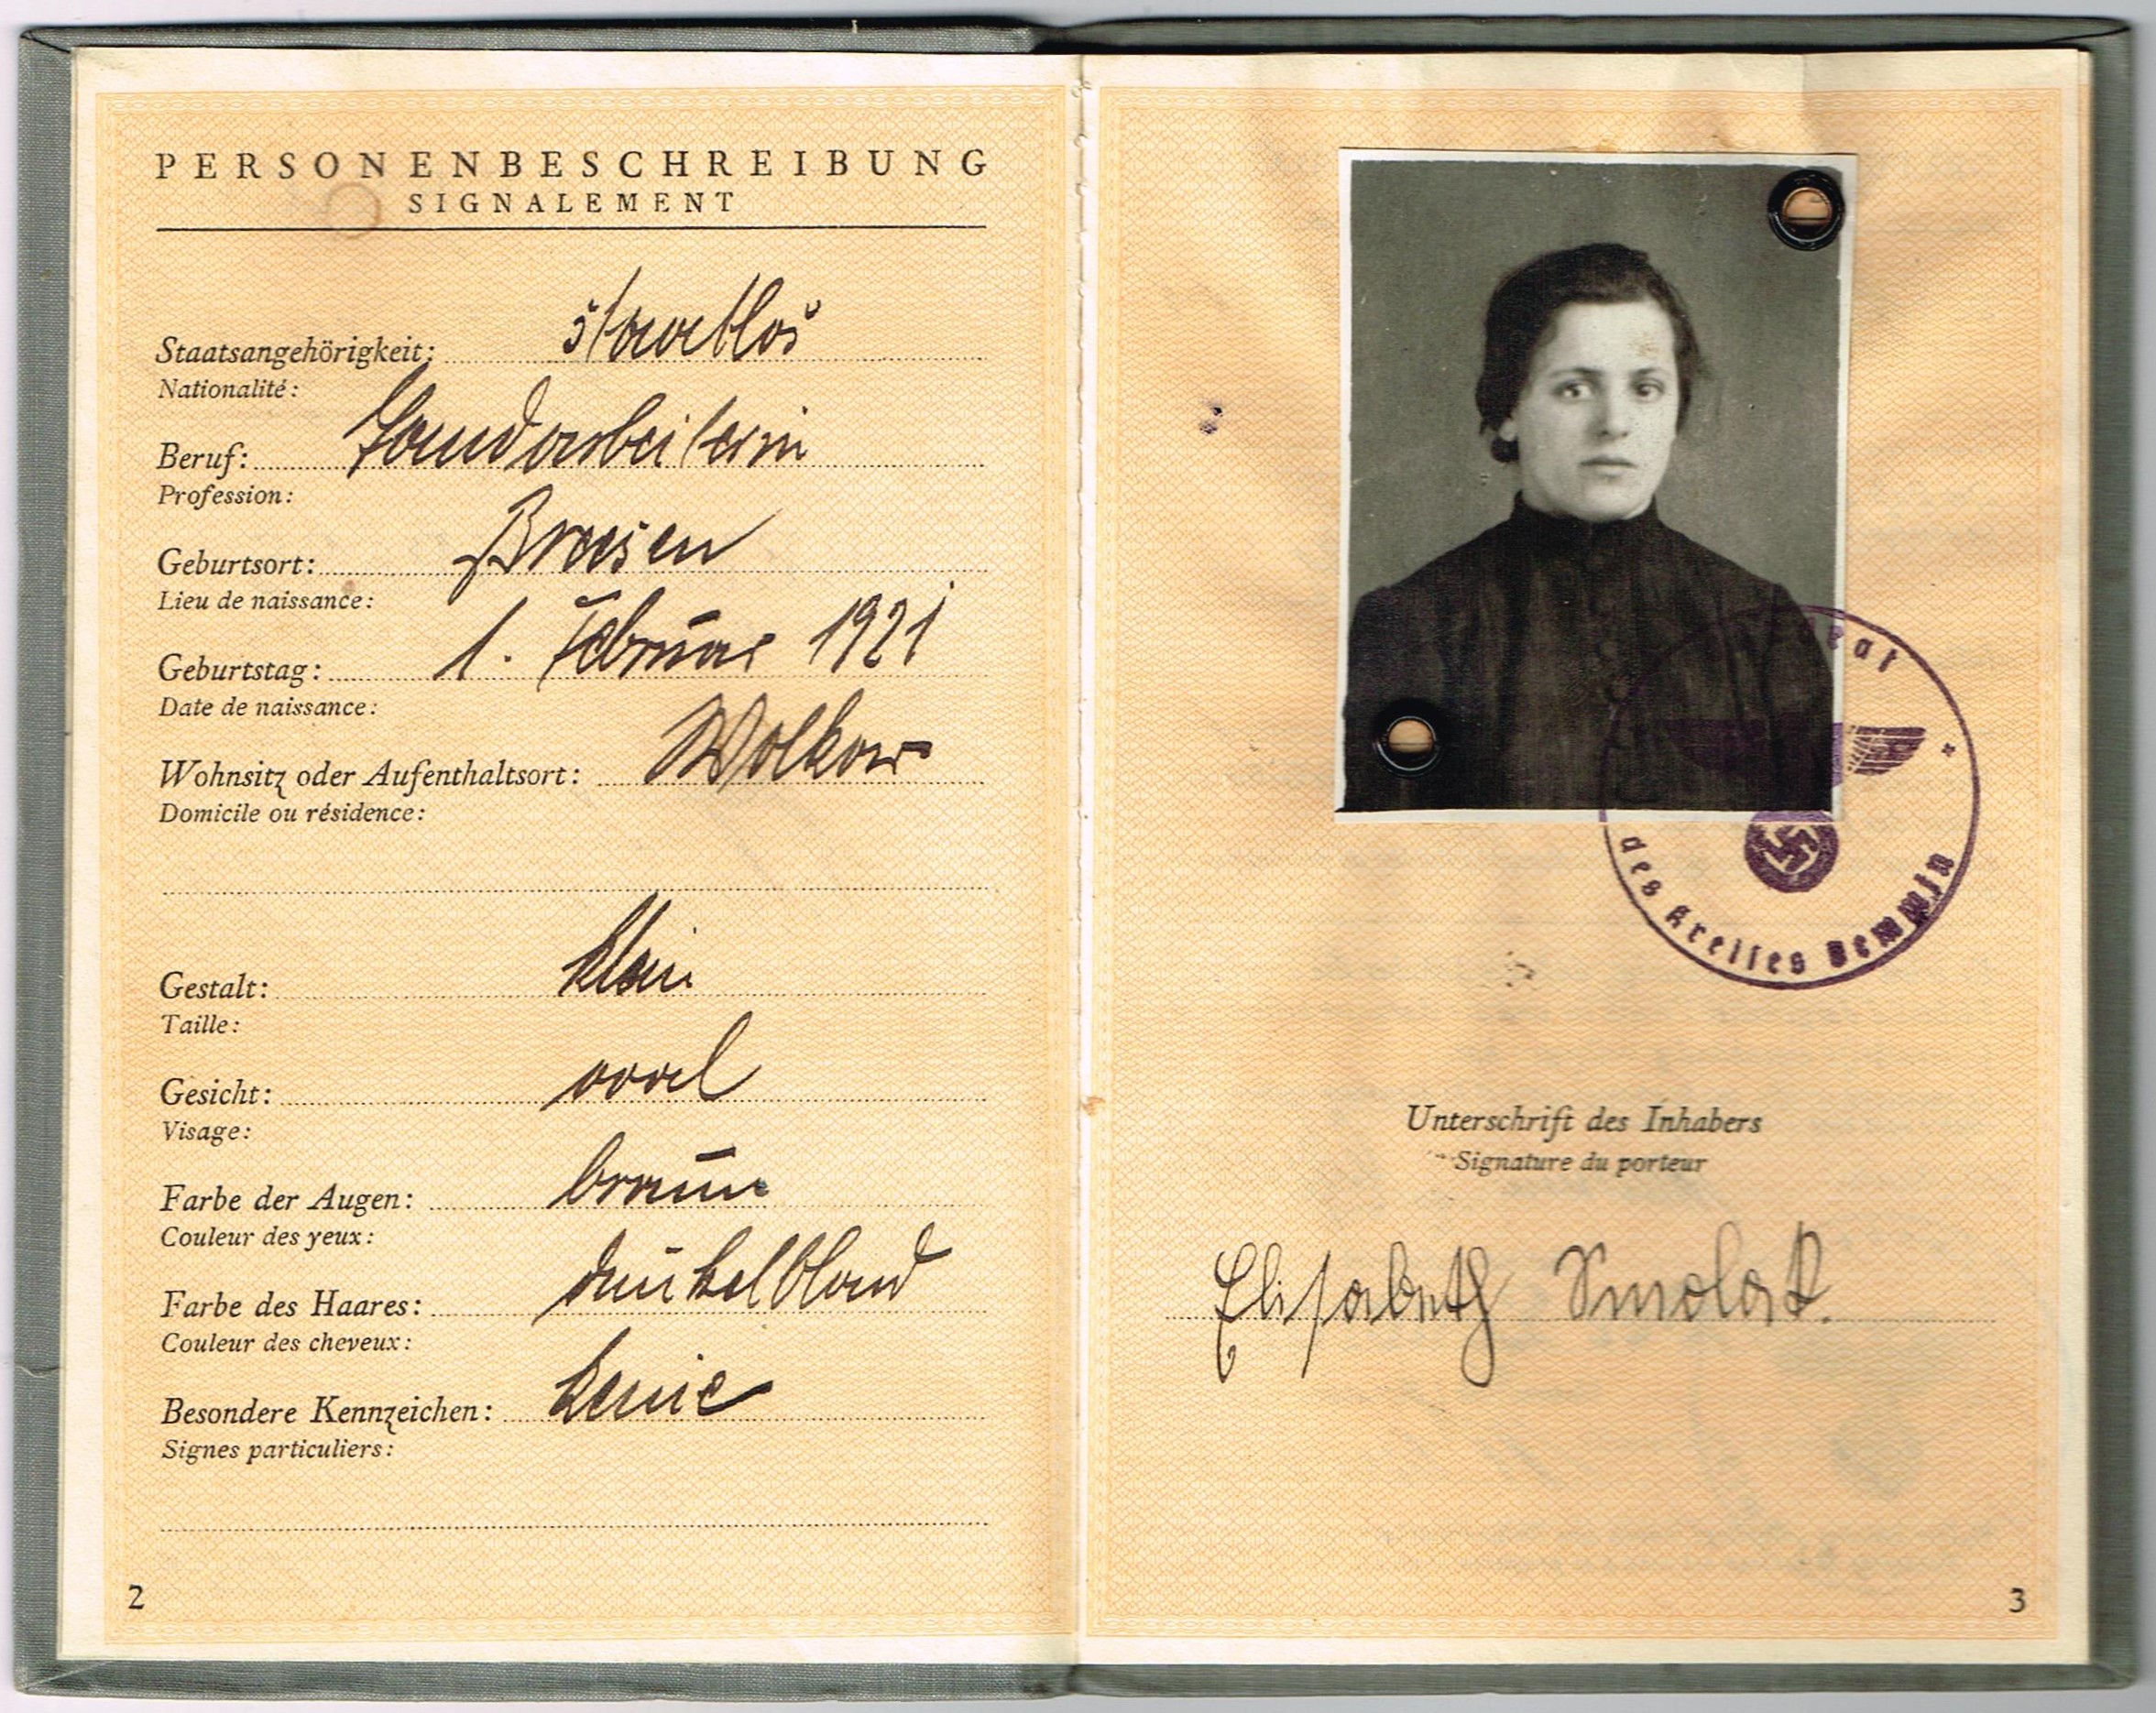 PERSONENBESCHREIBUNG
SIGNALEMENT
Staatsangehörigkeit: staatlos
Nationalité:
Beruf: Landarbeiterin
Profession:
Geburtsort: Broesen
Lieu de naissance:
Geburtstag: 1. Februar 1921
Date de naissance:
Wohnsitz oder Aufenthaltsort: Wolkow
Domicile ou résidence:
Gestalt: klein
Taille:
Gesicht: oval
Visage:
Farbe der Augen: braun
Couleur des yeux:
Farbe des Haares: dunkelblond
Couleur des cheveux:
Besondere Kennzeichen: keine
Signes particuliers:
2
des Kreises Demmin
Unterschrift des Inhabers
Signature du porteur
Elisabeth
3